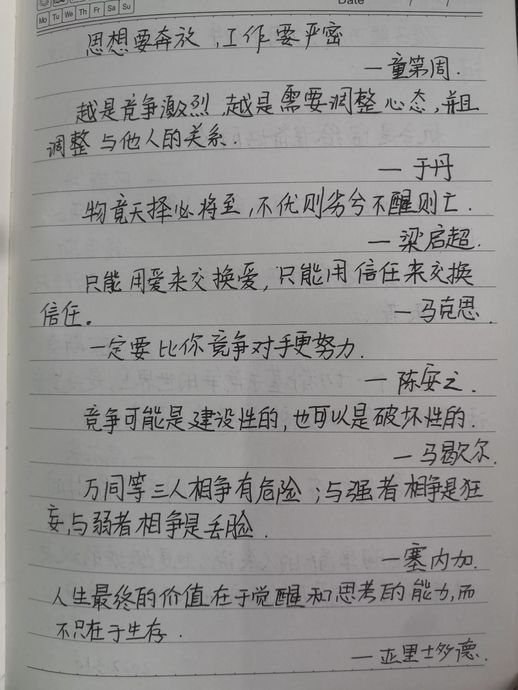 Mo Tu We Th Fr Sa Su
Date / /
思想要奔放,工作要严密
—童第周.
越是竞争激烈,越是需要调整心态,并且
调整与他人的关系.
—于丹
物竟天择必将至,不优则劣兮不醒则亡.
—梁启超.
只能用爱来交换爱,只能用信任来交换
信任。 —马克思.
一定要比你竞争对手更努力.
—陈安之.
竞争可能是建设性的,也可以是破坏性的.
—马歇尔.
万同等三人相争有危险;与强者相争是狂
妄,与弱者相争是丢脸.
—塞内加.
人生最终的价值在于觉醒和思考的能力,而
不只在于生存.
—亚里士多德.